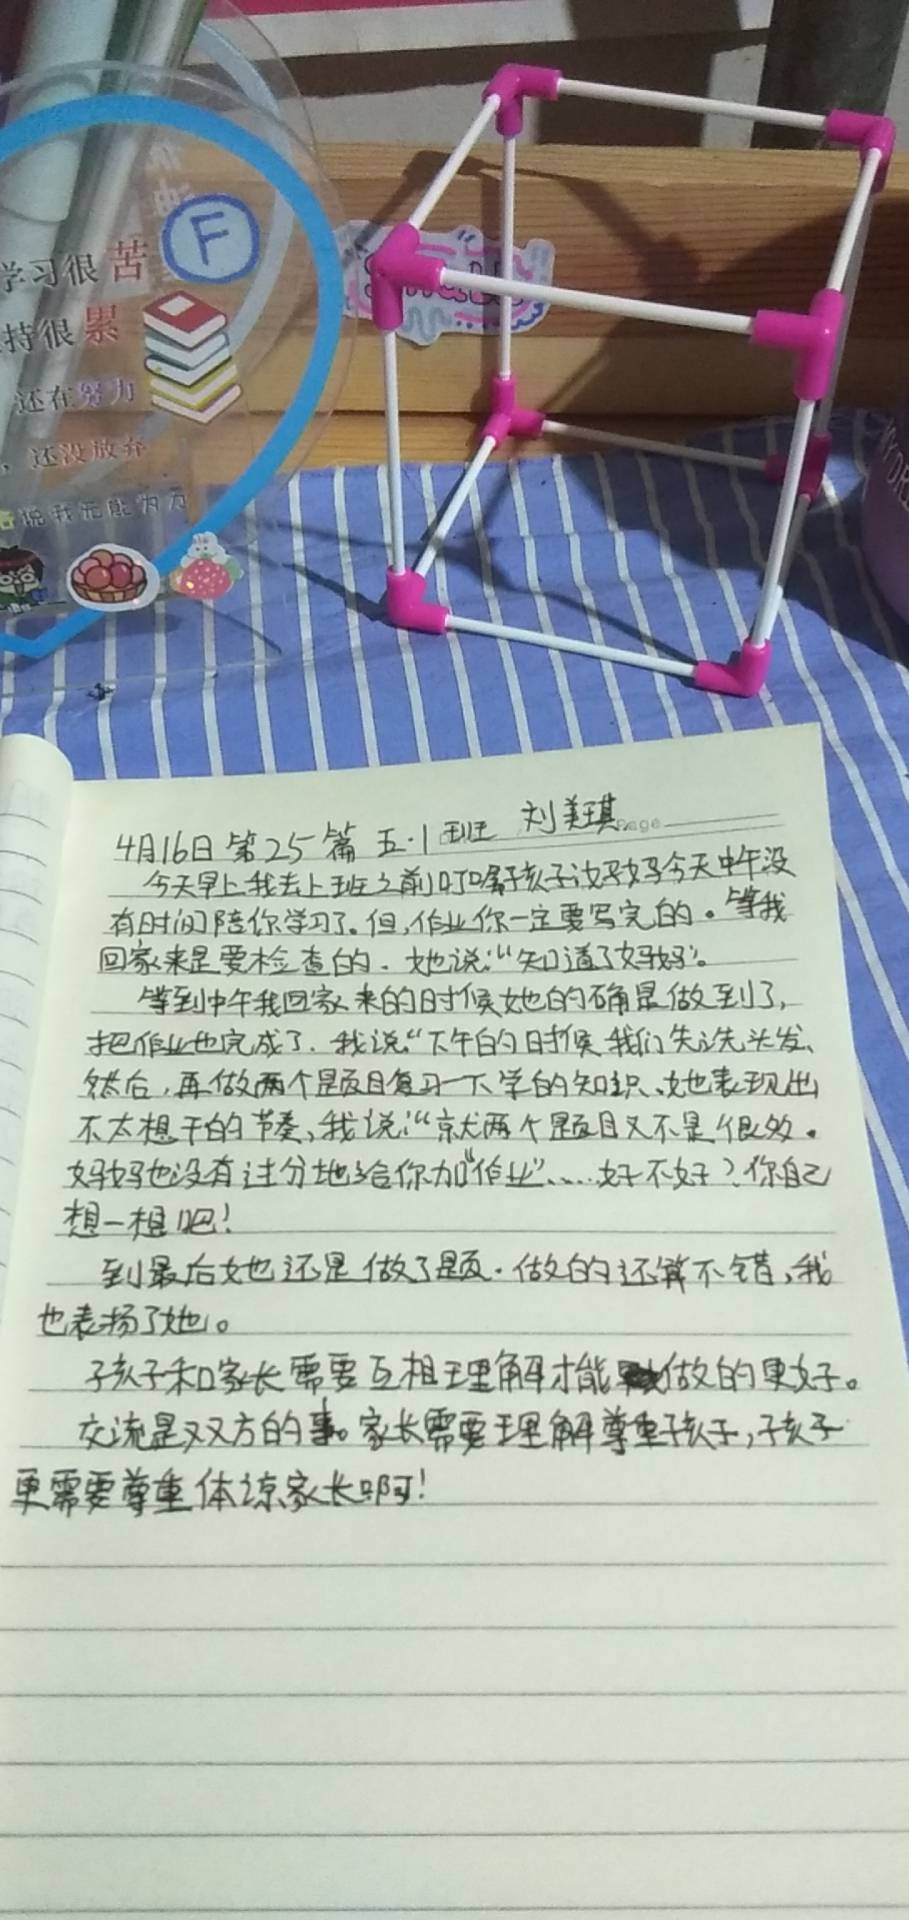 学习很苦
F
持很累
还在努力
，还没放弃
说我无能为力
4月16日 第25篇 五·1班 刘美琪
Page
今天早上我去上班之前叮嘱孩子说妈妈今天中午没
有时间陪你学习了。但，作业你一定要写完的。等我
回家来是要检查的．她说：“知道了妈妈”。
等到中午我回家来的时候她的确是做到了，
把作业也完成了．我说“下午的时候我们先洗头发、
然后，再做两个题目复习一下学的知识、她表现出
不太想干的节奏、我说：“就两个题目又不是很多．
妈妈也没有过分地给你加“作业”……好不好？你自己
想一想吧！
到最后她还是做了题．做的还算不错，我
也表扬了她。
孩子和家长需要互相理解才能做的更好。
交流是双方的事。家长需要理解尊重孩子，孩子
更需要尊重体谅家长啊！